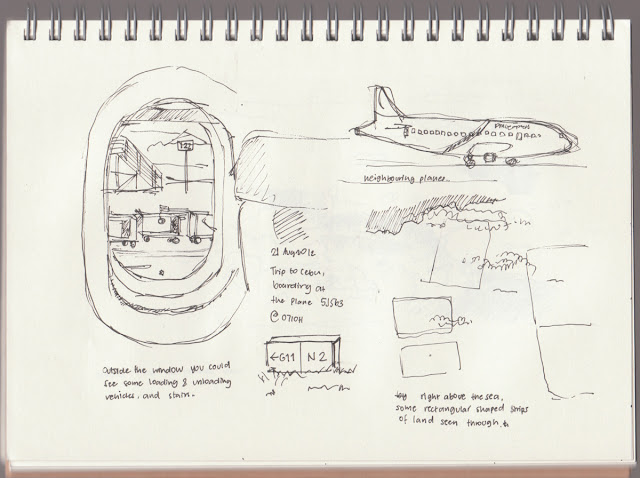 127
neighbouring planes.
21 Aug 2012
Trip to Cebu,
boarding at
the plane
@ 0710H
←G11 N2
Outside the window you could
see some loading & unloading
vehicles, and stairs.
right above the sea,
some rectangular shaped strips
of land seen through.